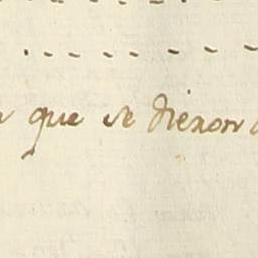 que se dieron